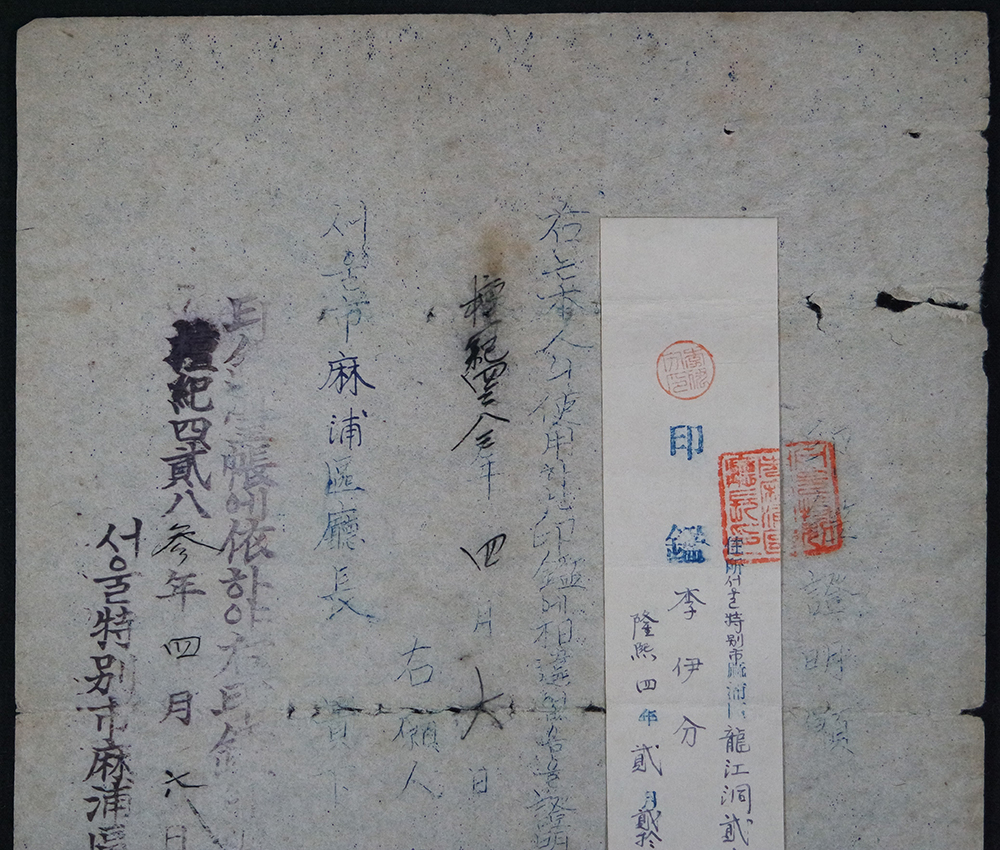 印鑑證明願
住所서울特別市麻浦區龍江洞貳
印鑑 李伊分
隆熙四年貳月貳拾
右는本人의使用하는印鑑에相違없음을證明
檀紀四二八三年 四月 六日
右願人
서울市麻浦區廳長 貴下
印鑑臺帳에依하야右印鑑
檀紀四貳八參年四月六日
서울特別市麻浦區